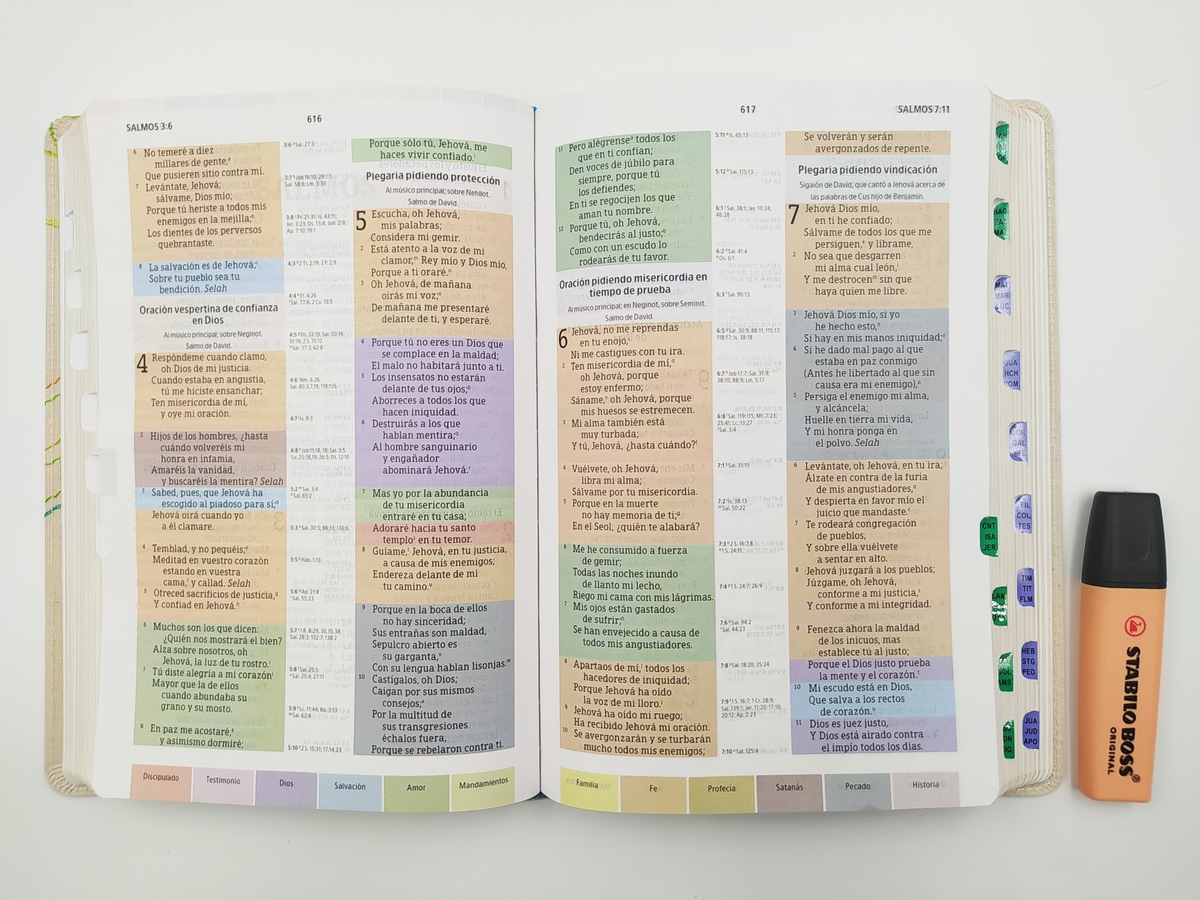 SALMOS 3:6
616
6 No temeré a diez
millares de gente,
Que pusieren sitio contra mí.
7 Levántate, Jehová;
sálvame, Dios mío;
Porque tú heriste a todos mis
enemigos en la mejilla;
Los dientes de los perversos
quebrantaste.
8 La salvación es de Jehová;
Sobre tu pueblo sea tu
bendición. Selah
Oración vespertina de confianza
en Dios
Al músico principal; sobre Neginot.
Salmo de David.
4 Respóndeme cuando clamo,
oh Dios de mi justicia.
Cuando estaba en angustia,
tú me hiciste ensanchar;
Ten misericordia de mí,
y oye mi oración.
2 Hijos de los hombres, ¿hasta
cuándo volveréis mi
honra en infamia,
Amaréis la vanidad,
y buscaréis la mentira? Selah
3 Sabed, pues, que Jehová ha
escogido al piadoso para sí;
Jehová oirá cuando yo
a él clamare.
4 Temblad, y no pequéis;
Meditad en vuestro corazón
estando en vuestra
cama, y callad. Selah
5 Ofreced sacrificios de justicia,
Y confiad en Jehová.
6 Muchos son los que dicen:
¿Quién nos mostrará el bien?
Alza sobre nosotros, oh
Jehová, la luz de tu rostro.
7 Tú diste alegría a mi corazón
Mayor que la de ellos
cuando abundaba su
grano y su mosto.
8 En paz me acostaré,
y asimismo dormiré;
Porque sólo tú, Jehová, me
haces vivir confiado.
Plegaria pidiendo protección
Al músico principal; sobre Nehilot.
Salmo de David.
5 Escucha, oh Jehová,
mis palabras;
Considera mi gemir.
2 Está atento a la voz de mi
clamor, Rey mío y Dios mío,
Porque a ti oraré.
3 Oh Jehová, de mañana
oirás mi voz;
De mañana me presentaré
delante de ti, y esperaré.
4 Porque tú no eres un Dios que
se complace en la maldad;
El malo no habitará junto a ti.
5 Los insensatos no estarán
delante de tus ojos;
Aborreces a todos los que
hacen iniquidad.
6 Destruirás a los que
hablan mentira;
Al hombre sanguinario
y engañador
abominará Jehová.
7 Mas yo por la abundancia
de tu misericordia
entraré en tu casa;
Adoraré hacia tu santo
templo en tu temor.
8 Guíame, Jehová, en tu justicia,
a causa de mis enemigos;
Endereza delante de mí
tu camino.
9 Porque en la boca de ellos
no hay sinceridad;
Sus entrañas son maldad,
Sepulcro abierto es
su garganta,
Con su lengua hablan lisonjas.
10 Castígalos, oh Dios;
Caigan por sus mismos
consejos;
Por la multitud de
sus transgresiones
échalos fuera,
Porque se rebelaron contra ti.
Discipulado
Testimonio
Dios
Salvación
Amor
Mandamientos
617
SALMOS 7:11
11 Pero alégrense todos los
que en ti confían;
Den voces de júbilo para
siempre, porque tú
los defiendes;
En ti se regocijen los que
aman tu nombre.
12 Porque tú, oh Jehová,
bendecirás al justo;
Como con un escudo lo
rodearás de tu favor.
Oración pidiendo misericordia en
tiempo de prueba
Al músico principal; en Neginot, sobre Seminit.
Salmo de David.
6 Jehová, no me reprendas
en tu enojo,
Ni me castigues con tu ira.
2 Ten misericordia de mí,
oh Jehová, porque
estoy enfermo;
Sáname, oh Jehová, porque
mis huesos se estremecen.
3 Mi alma también está
muy turbada;
Y tú, Jehová, ¿hasta cuándo?
4 Vuélvete, oh Jehová,
libra mi alma;
Sálvame por tu misericordia.
5 Porque en la muerte
no hay memoria de ti;
En el Seol, ¿quién te alabará?
6 Me he consumido a fuerza
de gemir;
Todas las noches inundo
de llanto mi lecho,
Riego mi cama con mis lágrimas.
7 Mis ojos están gastados
de sufrir;
Se han envejecido a causa de
todos mis angustiadores.
8 Apartaos de mí, todos los
hacedores de iniquidad;
Porque Jehová ha oído
la voz de mi lloro.
9 Jehová ha oído mi ruego;
Ha recibido Jehová mi oración.
10 Se avergonzarán y se turbarán
mucho todos mis enemigos;
Se volverán y serán
avergonzados de repente.
Plegaria pidiendo vindicación
Sigaión de David, que cantó a Jehová acerca de
las palabras de Cus hijo de Benjamín.
7 Jehová Dios mío,
en ti he confiado;
Sálvame de todos los que me
persiguen, y líbrame,
2 No sea que desgarren
mi alma cual león,
Y me destrocen sin que
haya quien me libre.
3 Jehová Dios mío, si yo
he hecho esto,
Si hay en mis manos iniquidad;
4 Si he dado mal pago al que
estaba en paz conmigo
(Antes he libertado al que sin
causa era mi enemigo),
5 Persiga el enemigo mi alma,
y alcáncela;
Huelle en tierra mi vida,
Y mi honra ponga en
el polvo. Selah
6 Levántate, oh Jehová, en tu ira;
Álzate en contra de la furia
de mis angustiadores,
Y despierta en favor mío el
juicio que mandaste.
7 Te rodeará congregación
de pueblos,
Y sobre ella vuélvete
a sentar en alto.
8 Jehová juzgará a los pueblos;
Júzgame, oh Jehová,
conforme a mi justicia,
Y conforme a mi integridad.
9 Fenezca ahora la maldad
de los inicuos, mas
establece tú al justo;
Porque el Dios justo prueba
la mente y el corazón.
10 Mi escudo está en Dios,
Que salva a los rectos
de corazón.
11 Dios es juez justo,
Y Dios está airado contra
el impío todos los días.
Familia
Fe
Profecía
Satanás
Pecado
Historia
CNT
ISA
JER
FIL
COL
TES
TIM
TIT
FLM
HEB
STG
PED
JUA
JUD
APO
STABILO BOSS
ORIGINAL